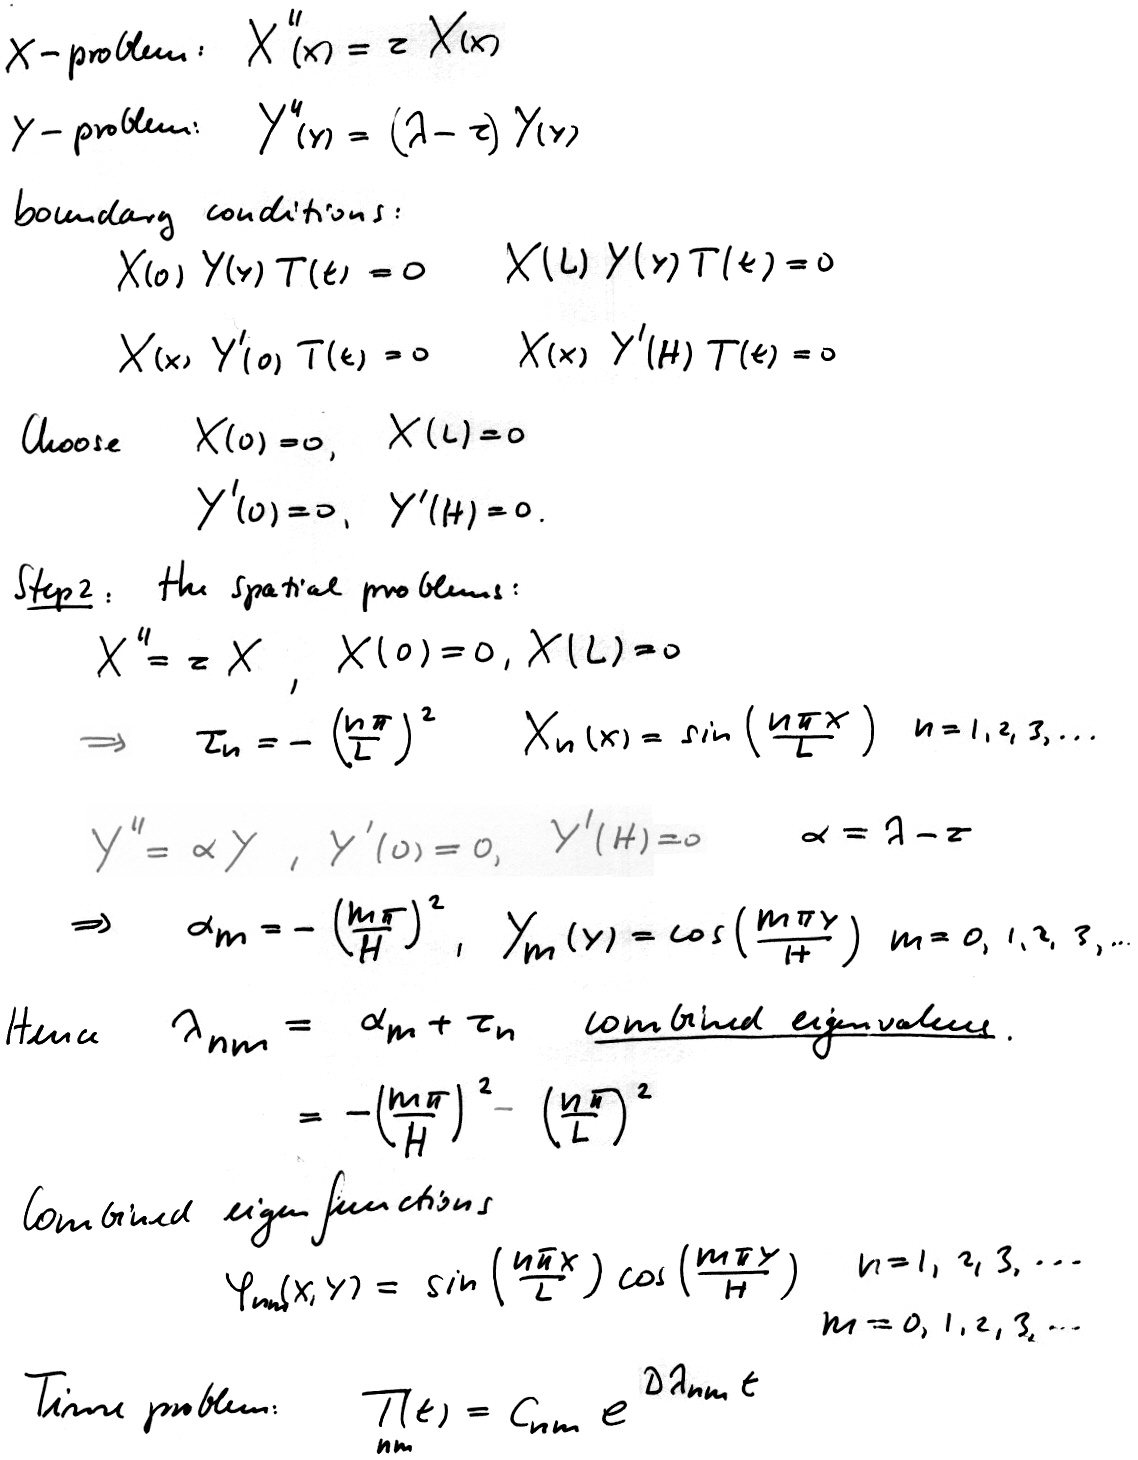 X-problem: X''(x) = τ X(x)
Y-problem: Y''(y) = (λ-τ) Y(y)
boundary conditions:
X(0) Y(y) T(t) = 0 X(L) Y(y) T(t) = 0
X(x) Y'(0) T(t) = 0 X(x) Y'(H) T(t) = 0
Choose X(0) = 0, X(L) = 0
Y'(0) = 0, Y'(H) = 0.
Step 2: the spatial problems:
X'' = τ X, X(0) = 0, X(L) = 0
⇒ τ_n = -(nπ/L)² X_n(x) = sin(nπx/L) n = 1, 2, 3, ...
Y'' = αY, Y'(0) = 0, Y'(H) = 0 α = λ-τ
⇒ α_m = -(mπ/H)², Y_m(y) = cos(mπy/H) m = 0, 1, 2, 3, ...
Hence λ_nm = α_m + τ_n combined eigenvalues.
= -(mπ/H)² - (nπ/L)²
Combined eigenfunctions
φ_nm(x,y) = sin(nπx/L) cos(mπy/H) n = 1, 2, 3, ...
m = 0, 1, 2, 3, ...
Time problem: T_nm(t) = C_nm e^{Dλ_nm t}